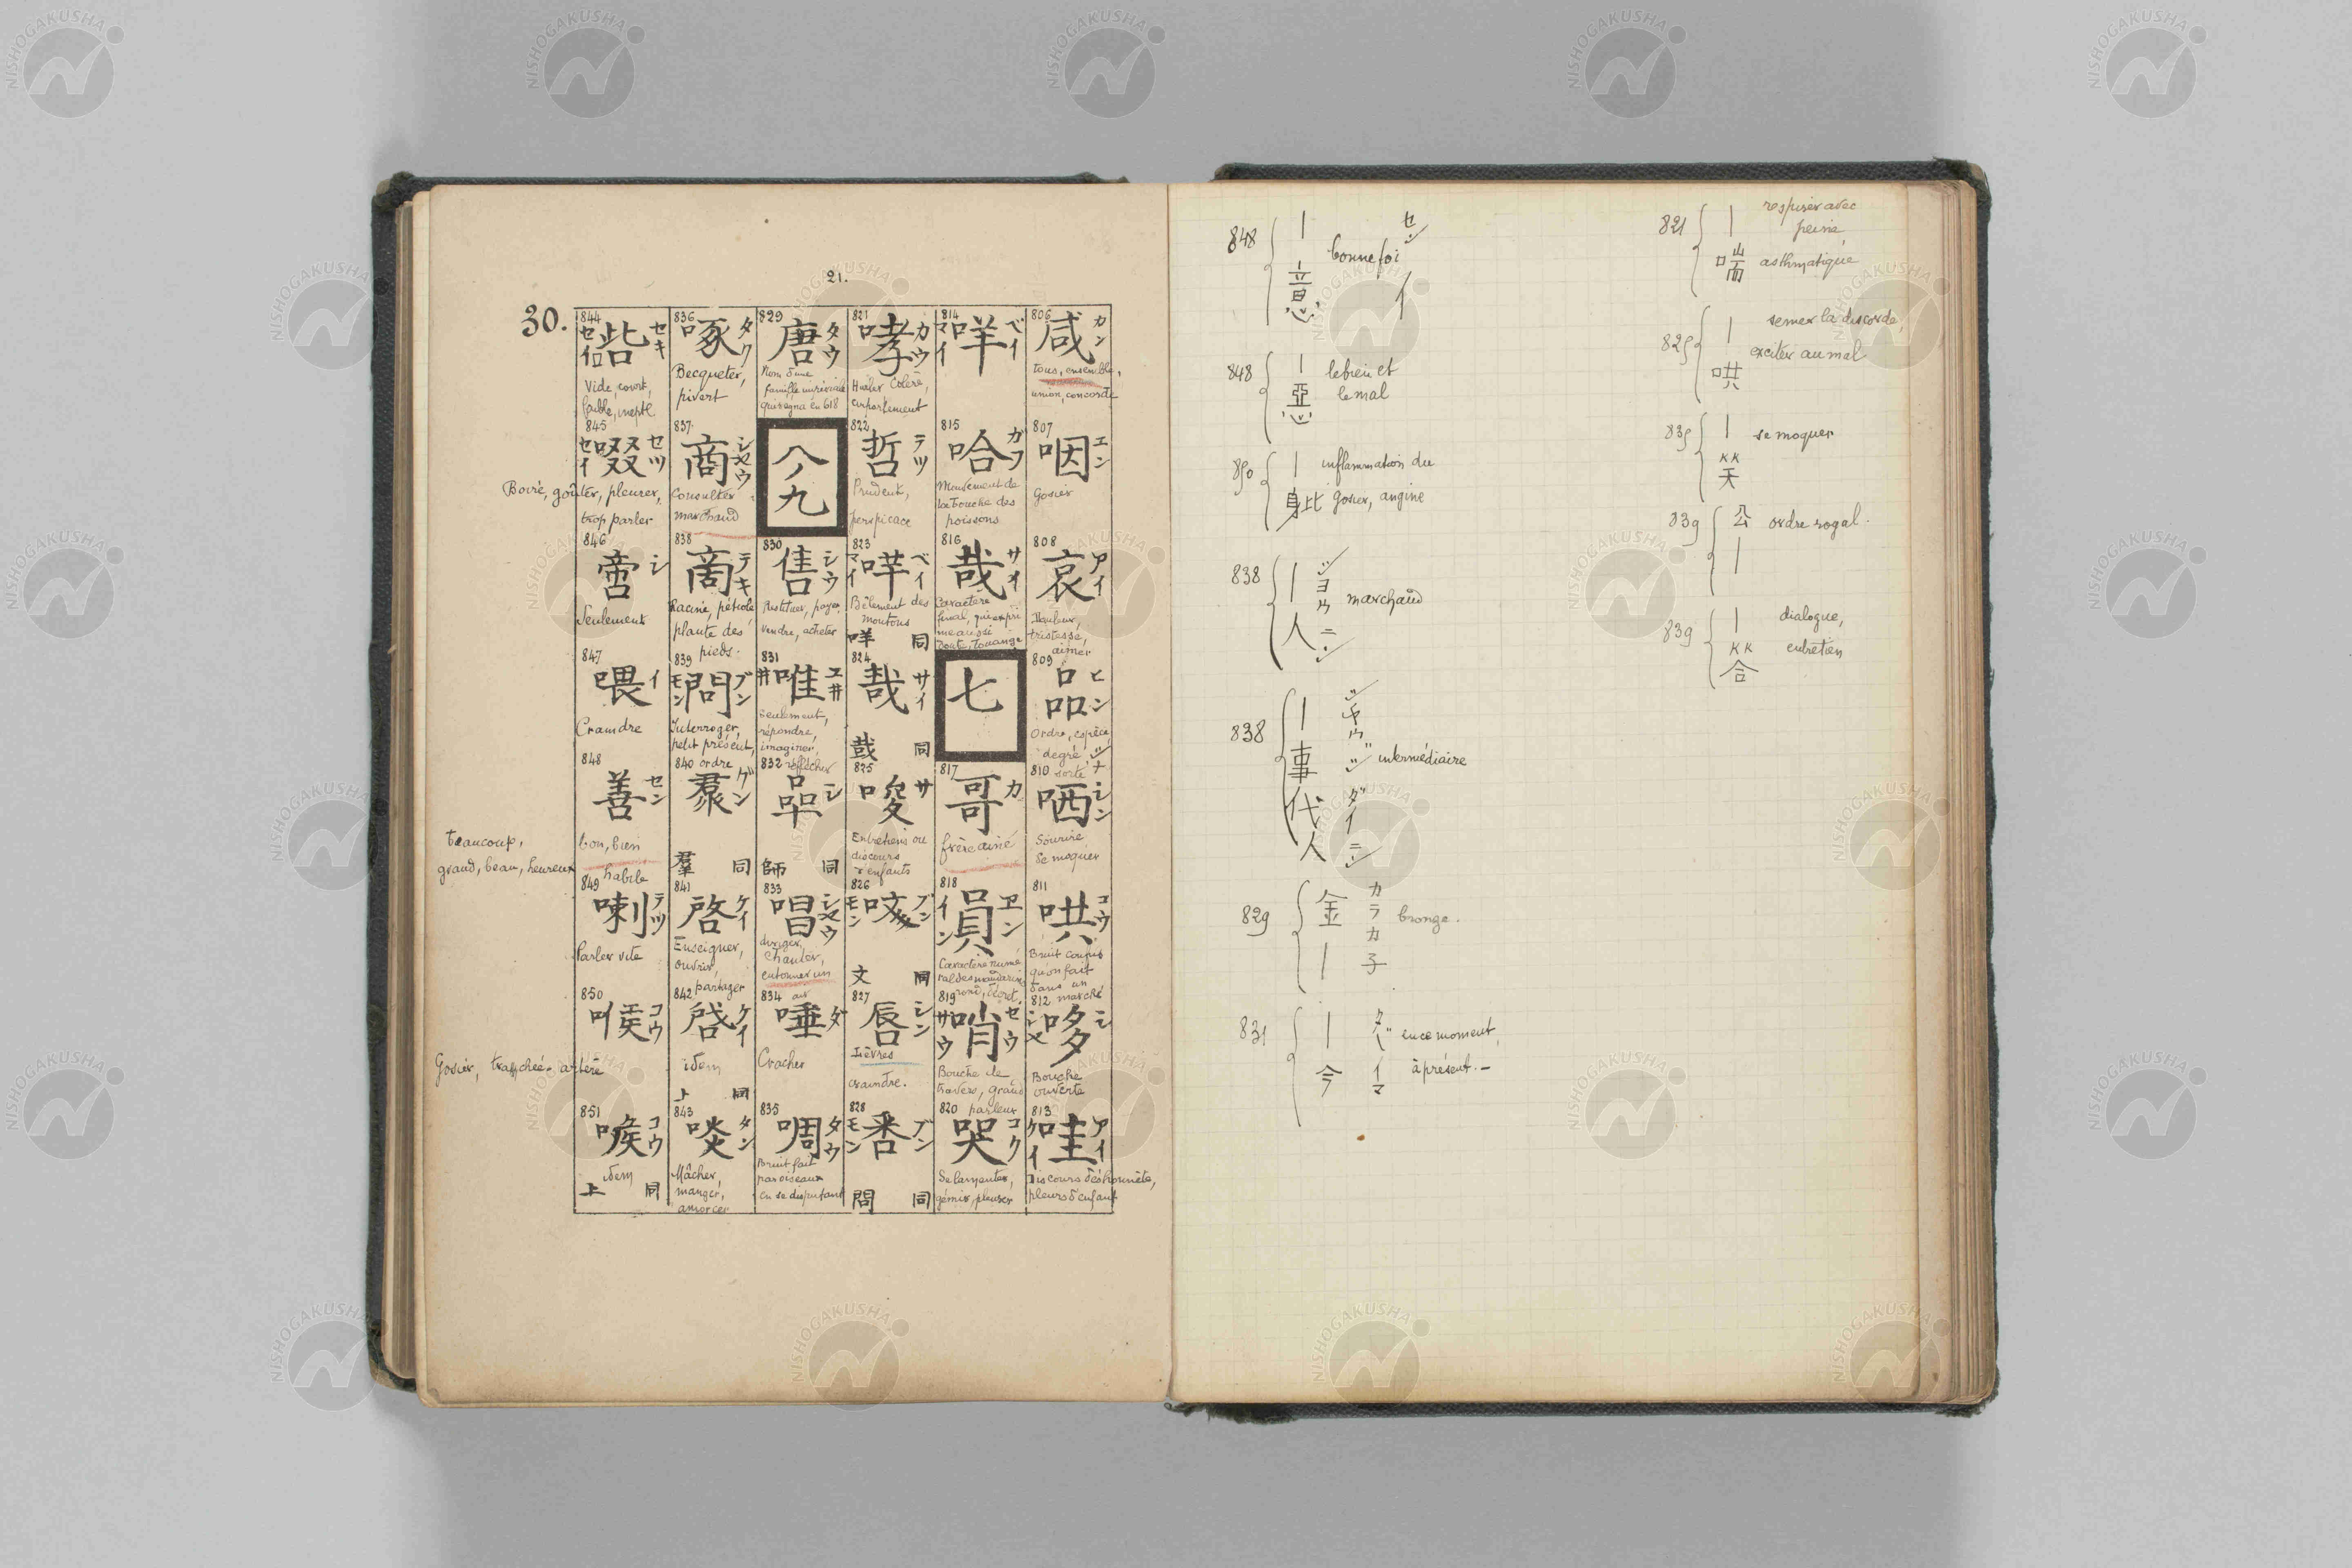 21.
30.
806
咸
カン
tous, ensemble,
union, concorde
807
咽
エン
Gosier
808
哀
アイ
tristesse,
aimer
809
品
ヒン
Ordre, espèce,
degré,
sorte
810
哂
シン
Sourire
Se moquer
811
哄
コウ
Bruit confus
qu'on fait
dans un
marché
812
哆
シ
シヤ
Bouche
ouverte
813
哇
アイ
ケイ
Discours déshonnête,
pleurs d'enfant
814
咩
ベイ
マイ
815
哈
ガフ
Mouvement de
la bouche des
poissons
816
哉
サイ
Caractère
final, qui expri
me aussi
doute, louange
七
817
哥
カ
frère ainé
818
員
ヱン
イン
Caractère numé
ral des mandarins
rond,
819
哨
セウ
サウ
Bouche de
travers, grand
parleur
820
哭
コク
Se lamenter,
gémir, pleurer
821
哮
カウ
Hurler Colère,
emportement
822
哲
テツ
Prudent,
perspicace
823
哶
ベイ
マイ
Bêlement des
moutons
咩 同
824
サイ
同
825
唆
サ
Entretiens ou
discours
d'enfants
826
ブン
モン
文 同
827
唇
シン
Lèvres
craindre.
828
ブン
モン
問 同
829
唐
タウ
Nom d'une
famille impériale
qui régna en 618
八ノ九
830
售
シウ
Restituer, payer,
vendre, acheter
831
唯
ユ井
井
Seulement,
répondre,
imaginer,
réfléchir
832
シ
師 同
833
唱
シヤウ
diriger,
chanter,
entonner un
air
834
唾
ダ
Cracher
835
啁
タウ
Bruit fait
par oiseaux
en se disputant
836
啄
タク
Becqueter,
pivert
837
商
シヤウ
Consulter
marchand
838
啇
テキ
Racine, pétiole
plante des
pieds.
839
問
ブン
モン
Interroger,
petit présent,
ordre
840
グン
羣 同
841
啓
ケイ
Enseigner,
ouvrir,
partager
842
啟
ケイ
idem
上 同
843
啖
タン
Mâcher,
manger,
amorcer
844
セキ
Vide, court,
faible, inepte
845
啜
セツ
セイ
Boire, goûter, pleurer,
trop parler
846
啻
シ
Seulement
847
喂
イ
Craindre
848
善
セン
bon, bien
habile
beaucoup,
grand, beau, heureux
849
喇
テツ
Parler vite
850
コウ
Gosier, trachée-artère
851
喉
コウ
idem
上 同
848 | 意 bonne foi
848 | 惡 le bien et
le mal
850 | inflammation du
gosier, angine
838 | 人 marchand
838 | 事代人 intermédiaire
829 金 | カラカ子 bronze.
831 | 今 タヾイマ en ce moment,
à présent.—
821 | 喘 respirer avec
peine
asthmatique
825 | 哄 semer la discorde,
exciter au mal
835 | 笑 se moquer
839 公 | ordre royal.
839 | 答 dialogue,
entretien